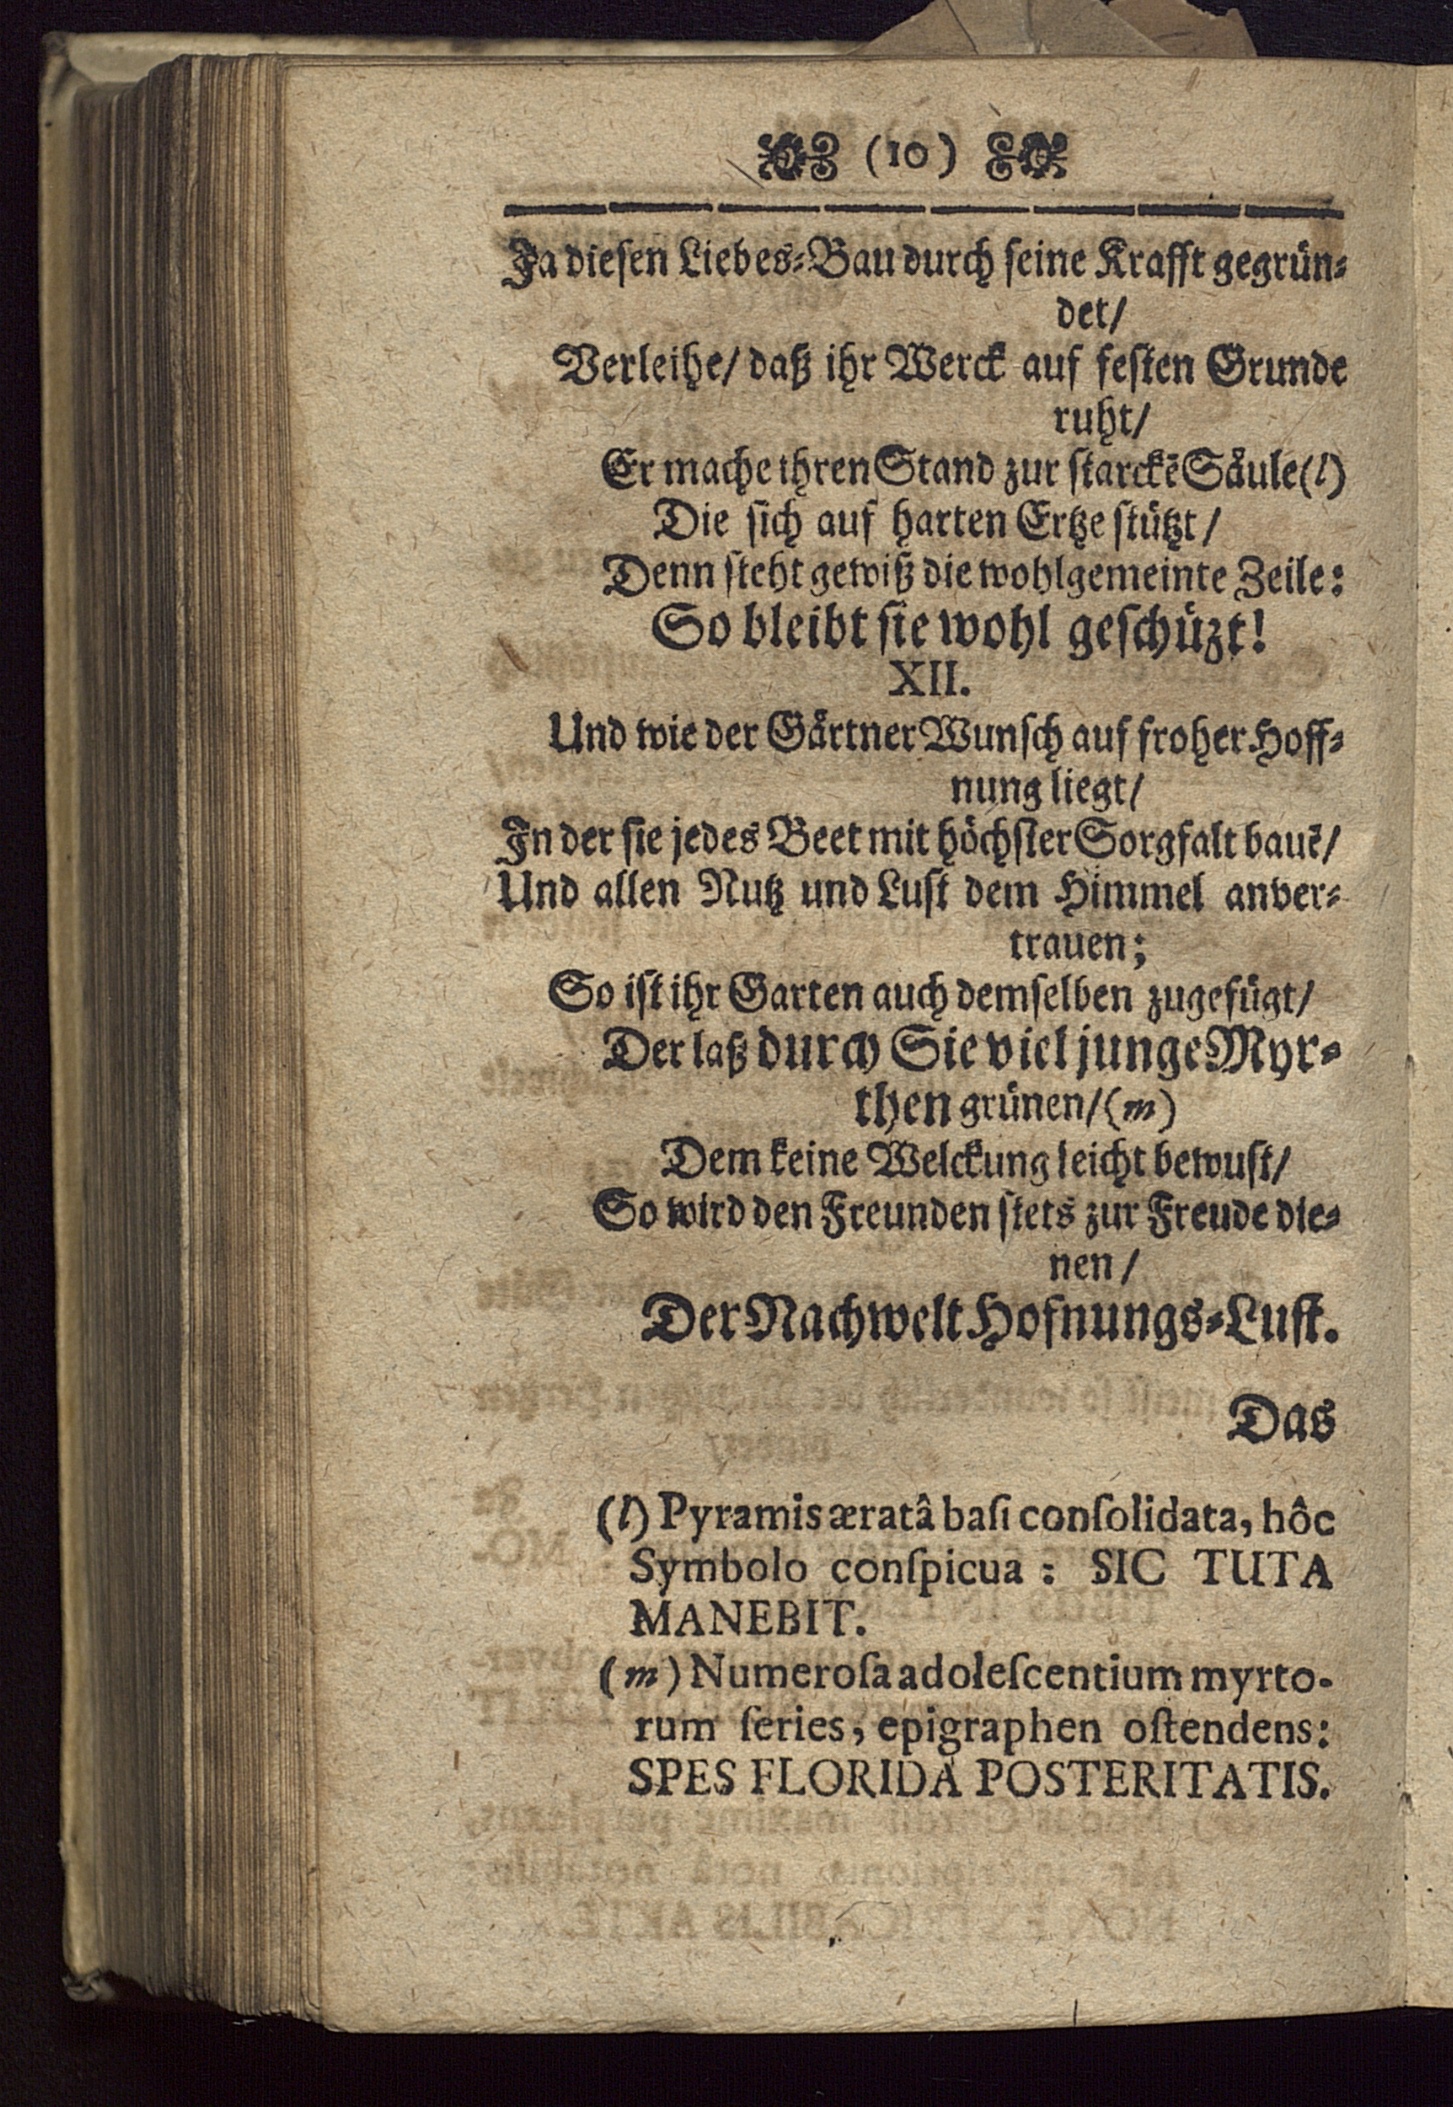 (10)
Ja diesen Liebes-Bau durch seine Krafft gegrün-
det/
Verleihe/ daß ihr Werck auf festen Grunde
ruht/
Er mache ihren Stand zur starckē Säule(l)
Die sich auf harten Ertze stützt/
Denn steht gewiß die wohlgemeinte Zeile:
So bleibt sie wohl geschüzt!
XII.
Und wie der Gärtner Wunsch auf froher Hoff-
nung liegt/
In der sie jedes Beet mit höchster Sorgfalt bauē/
Und allen Nutz und Lust dem Himmel anver-
trauen;
So ist ihr Garten auch demselben zugefügt/
Der laß durch Sie viel junge Myr-
then grünen/(m)
Dem keine Welckung leicht bewust/
So wird den Freunden stets zur Freude die-
nen/
Der Nachwelt Hofnungs-Lust.
Das
(l) Pyramis æratâ basi consolidata, hôc
Symbolo conspicua : SIC TUTA
MANEBIT.
(m) Numerosa adolescentium myrto-
rum series, epigraphen ostendens:
SPES FLORIDA POSTERITATIS.